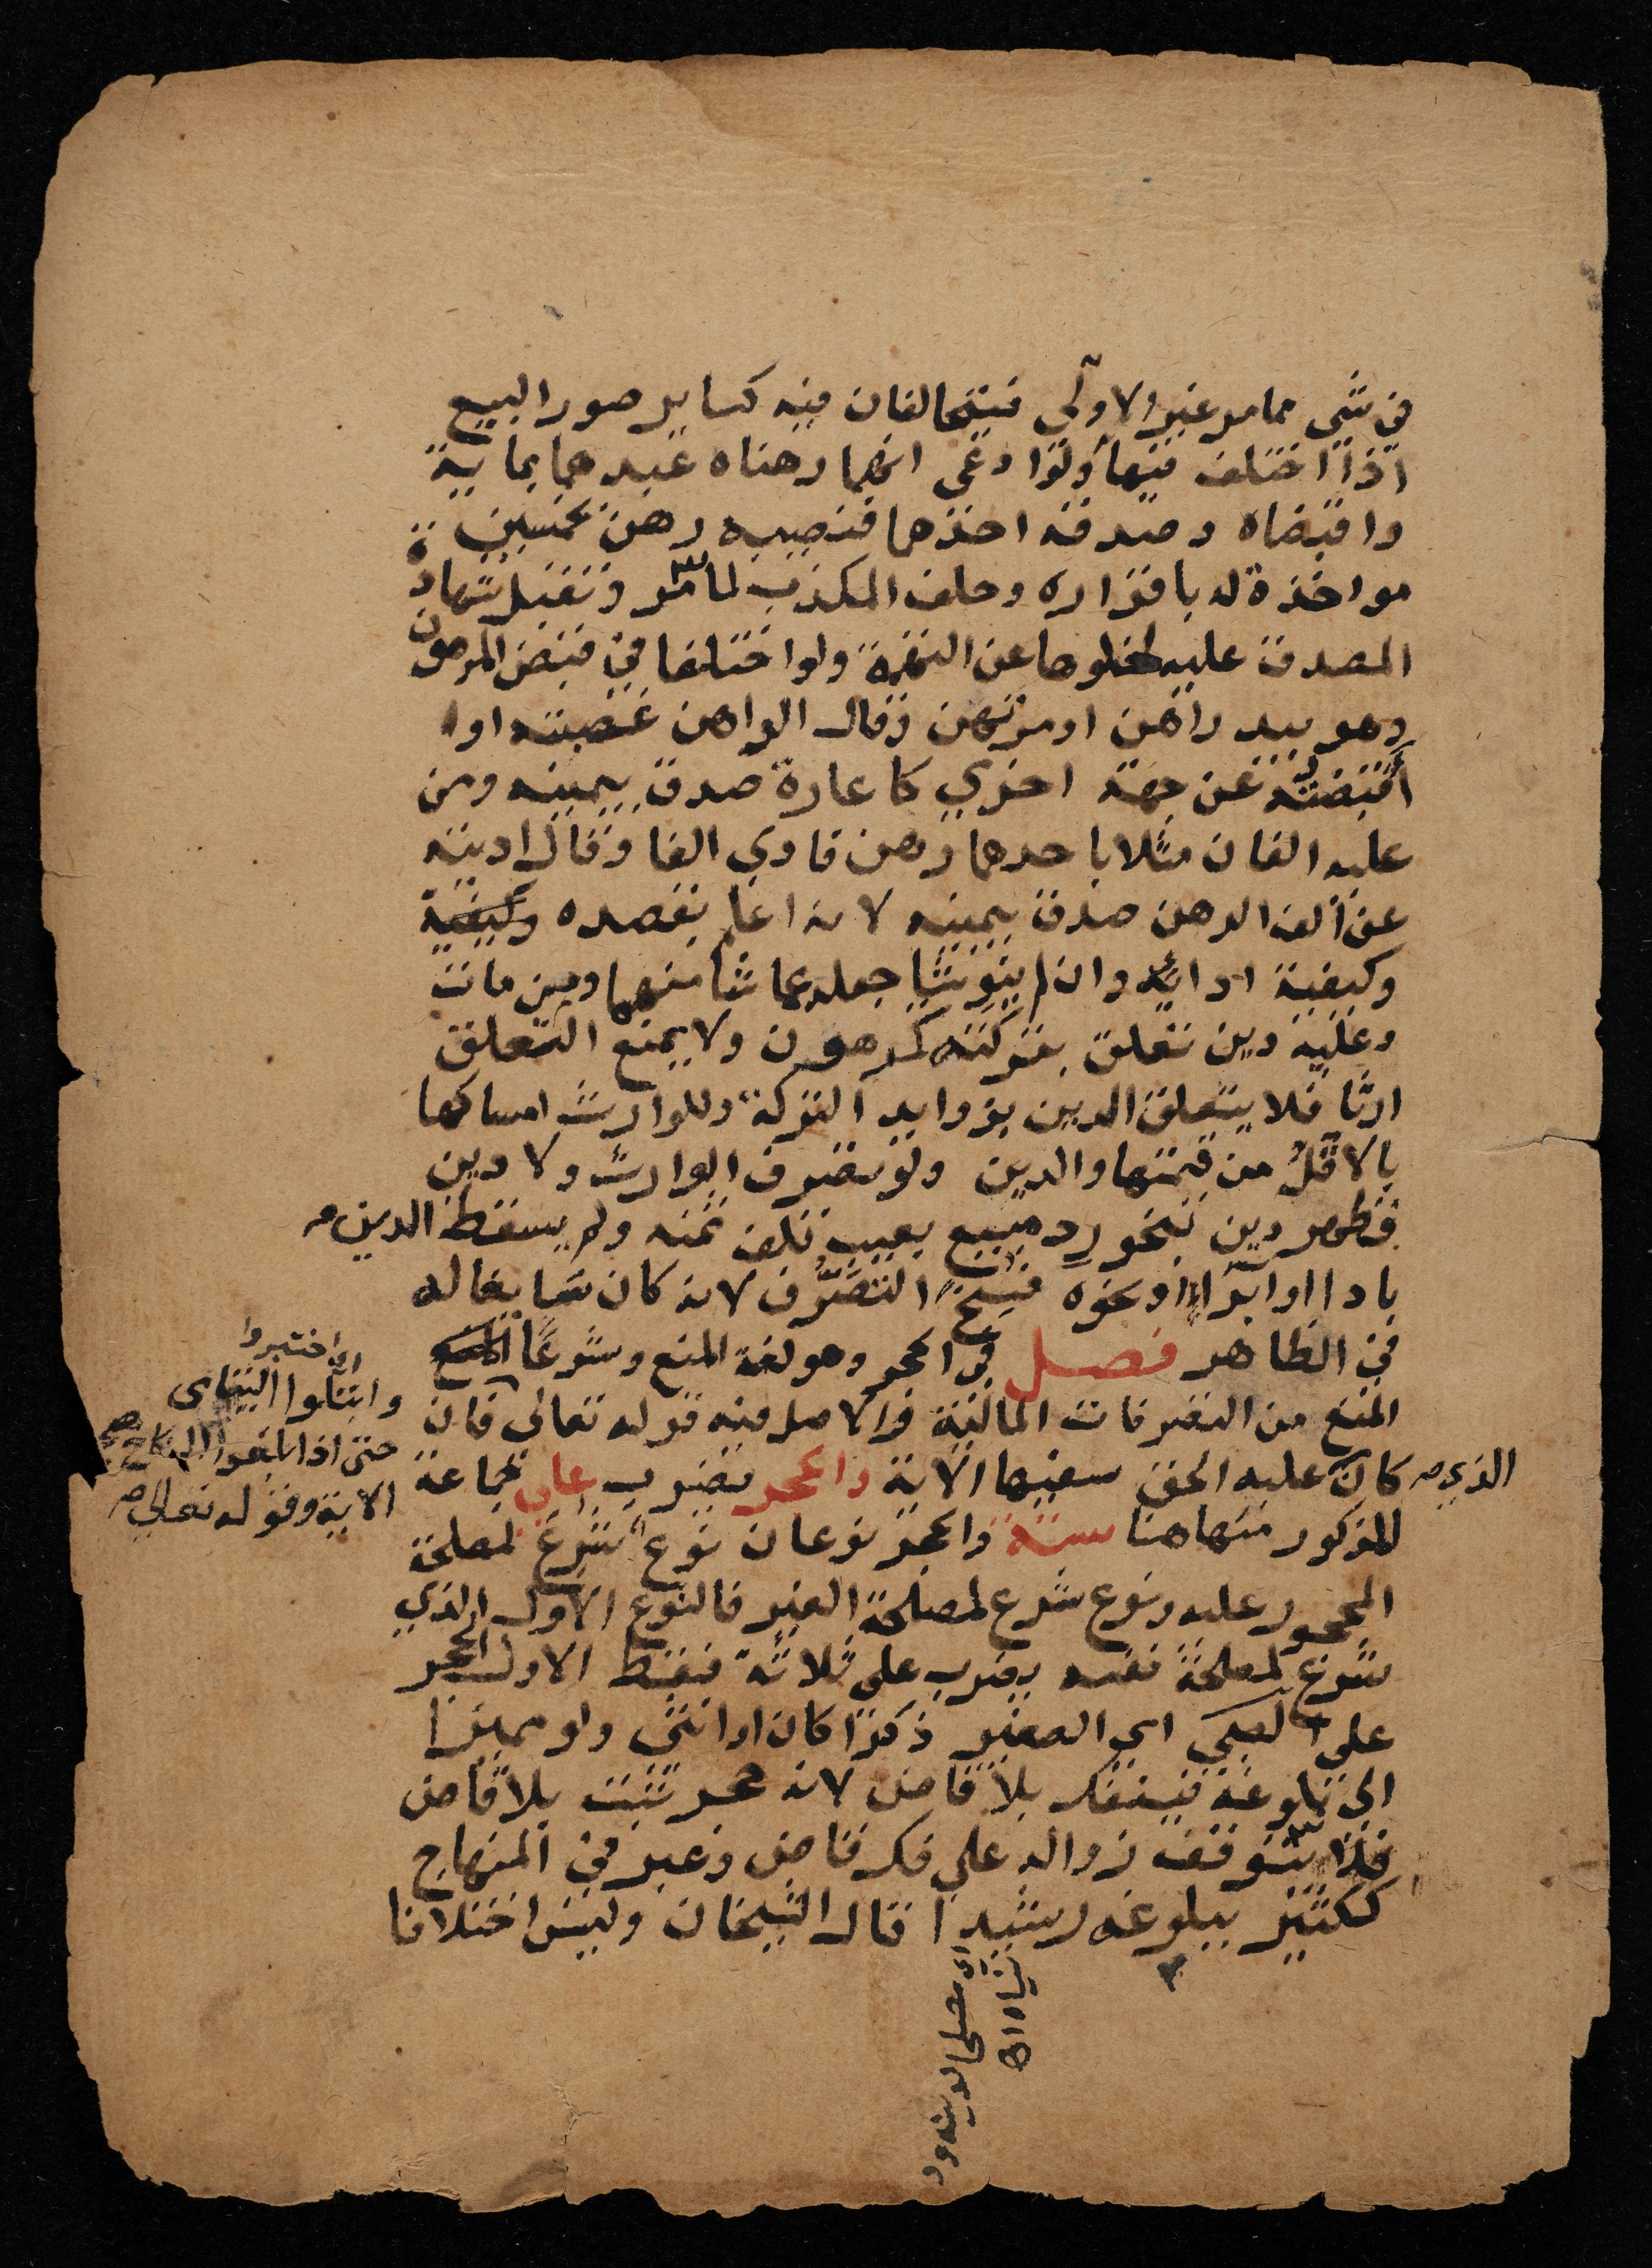 في شي مما مر غير الاولى فيتحالفان فيه كساير صور البيع
اذا اختلف فيها ولو ادعى انهما رهناه عبدهما بماية
واقبضاه وصدقه احدهما فنصيبه رهن بخمسين
مواخذة له باقراره وحلف المكذب لما مر وتقبل شهادة
المصدق عليه لخلوها عن التهمة ولو اختلفا في قبض المرهون
وهو بيد راهن او مرتهن وقال الراهن غصبته او
أقبضته عن جهة اخرى كاعارة صدق بيمينه ومن
عليه الفان مثلا باحدهما رهن فادى الفا وقال اديته
عن الف الرهن صدق بيمينه لانه اعلم بقصده وكيفية
وكيفية ادائه وان لم ينو شيا جعله عما شا منهما ومن مات
وعليه دين تعلق بتركته كمرهون ولا يمنع التعلق
ارثا فلا يتعلق الدين بزوايد التركة وللوارث امساكها
بالاقل من قيمتها والدين ولو تصرف الوارث ولا دين
فظهر دين بنحو رد مبيع بعيب تلف ثمنه ولم يسقط الدين
بادا او ابراء او نحوه فسخ التصرف لانه كان سايغا له
في الظاهر فصل في الحجر وهو لغة المنع وشرعا المنع
المنع من التصرفات المالية والاصل فيه قوله تعالى فان
كان الذي عليه الحق سفيها الاية والحجر يضرب على جماعة
المذكور منها هنا ستة والحجر نوعان نوع شرع لمصلحة
المحجور عليه ونوع شرع لمصلحة الغير فالنوع الاول الذي
شرع لمصلحة نفسه يضرب على ثلاثة فقط الاول الحجر
على الصبي اي الصغير ذكرا كان او انثى ولو مميزا
الى بلوغه فينفك بلا قاض لانه حجر تثبت بلا قاض
فلا يتوقف زواله على فك قاض وعبر في المنهاج
ككثير ببلوغه رشيدا قال الشيخان وليس اختلافا
اي اختبروا
وابتلوا اليتامى
حتى اذا بلغوا النكاح
الاية وقوله تعالى